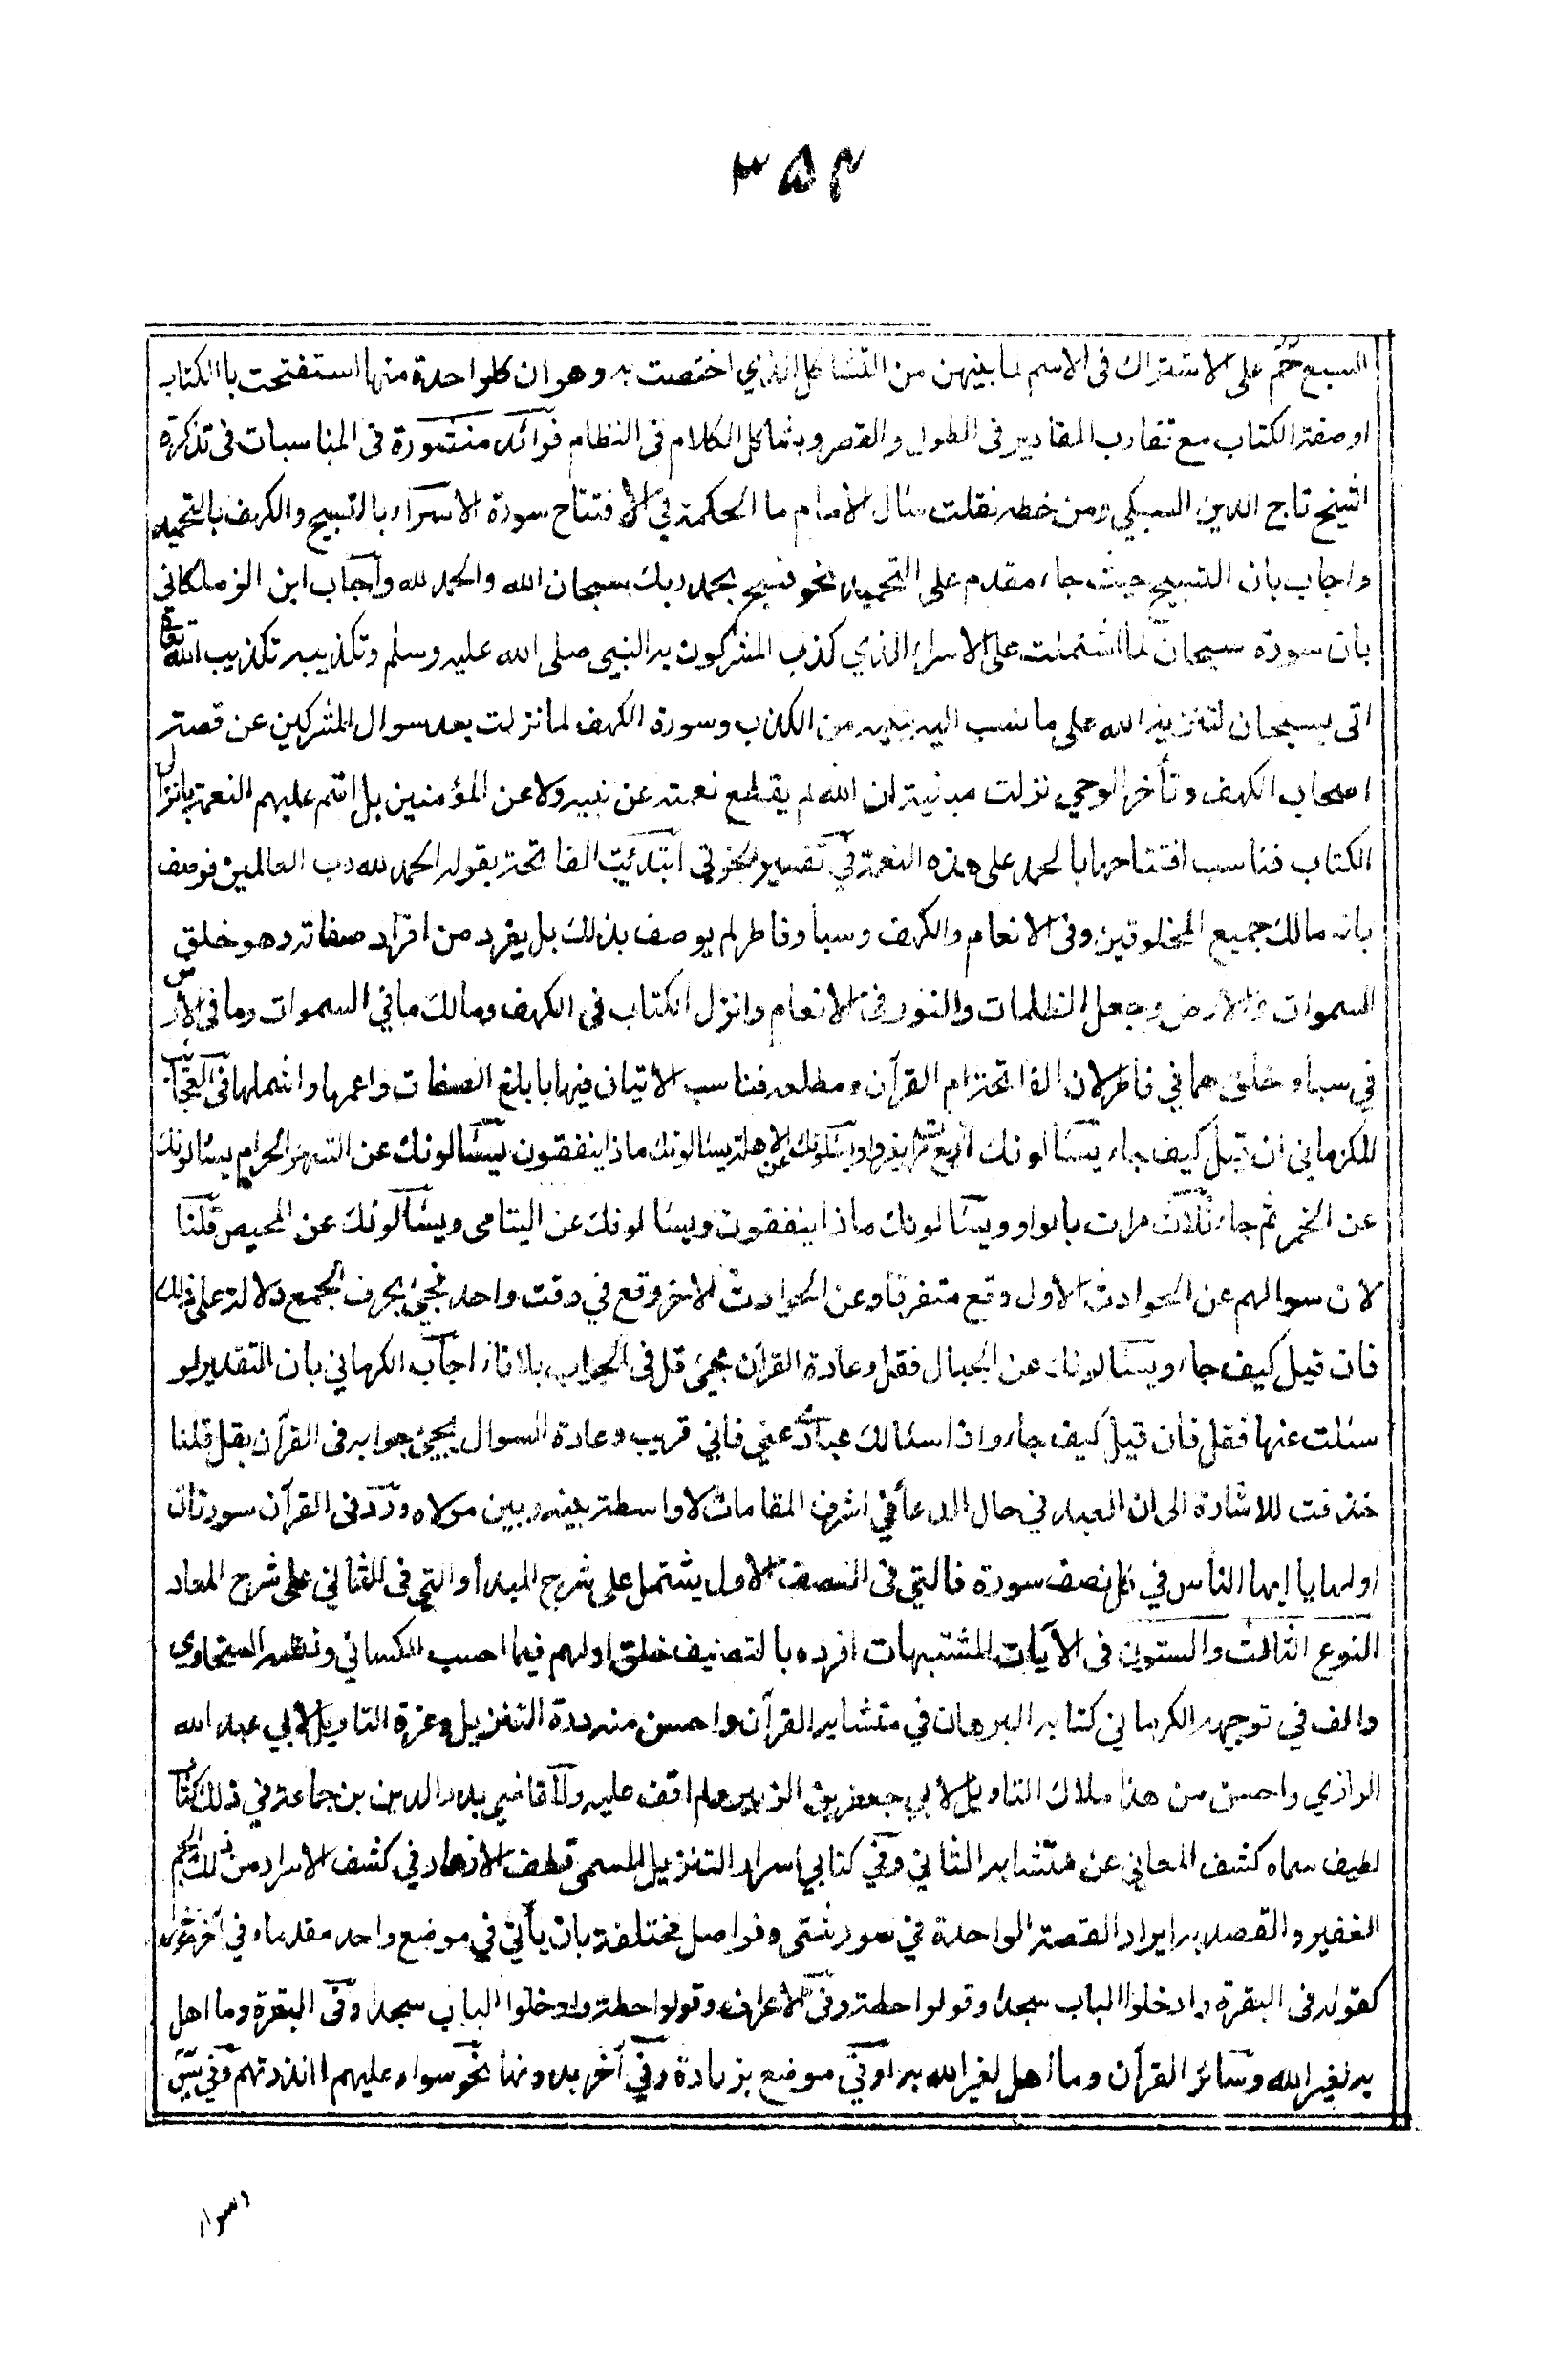 ٣٥٣
السبع حم على الاشتراك فى الاسم لما بينهن من التشاكل الذي اختصت به وهو ان كلواحدة منها استفتحت با الكتاب
او صفة الكتاب مع تقارب المقادير فى الطول والقصر وبشاكل الكلام فى النظام فوائد منثورة فى المناسبات فى تذكرة
الشيخ تاج الدين السبكي ومن خطه نقلت سئال الأمام ما الحكمة في الافتتاح سورة الاسراء بالتسبيح والكهف بالتحميد
واجاب بان التسبيح حيث جاء مقدم على التحميد نحو فسبح بحمد ربك سبحان الله والحمد لله وأجاب ابن الزملكانى
بان سورة سبحان لما اشتملت على الاسراء الذي كذب المشركون به النبي صلى الله عليه وسلم وتكذيبه تكذيب الله تعالى
اتى بسبحان لتنزيه الله على ما نسب اليه نبيه من الكذب وسورة الكهف لما نزلت بعد سوال المشركين عن قصة
اصحاب الكهف وتأخر الوحي نزلت مبنية ان الله لم يقطع نعمته عن نبيه ولا عن المؤمنين بل اتم عليهم النعمة بانزال
الكتاب فناسب افتتاحها بالحمد على هذه النعمة في تفسير الخوئي ابتدئت الفاتحة بقوله الحمد لله رب العالمين فوصف
بانه مالك جميع المخلوقين وفى الانعام والكهف وسبا وفاطر لم يوصف بذلك بل يفرد من افراد صفاته وهو خلق
السموات والارض وجعل الظلمات والنور فى الانعام وانزل الكتاب فى الكهف ومالك ما في السموات وما فى الأرض
في سبا وخلق هما في فاطر لان الفاتحة ام القرآن ومطلعه فناسب الاتيان فيها بابلغ الصفات واعمها واشملها فى العجائب
للكرماني ان قيل كيف جاء يسئالونك اربع مرات بغير واو يسئلونك عن الاهلة يسئالونك ماذا ينفقون يسئالونك عن الشهر الحرام يسئالونك
عن الخمر ثم جاء ثلاث مرات بالواو ويسئالونك ماذا ينفقون ويسئالونك عن اليتامى ويسئالونك عن المحيص قلنا
لان سوالهم عن الحوادث الأول وقع متفرقا وعن الحوادث الاخر وقع في وقت واحد فجيئ بحرف الجمع دلالة على ذلك
فان قيل كيف جاء ويسئالونك عن الجبال فقل وعادة القرآن مجيئ قل فى الجواب بلا فاء اجاب الكرماني بان التقدير لو
سئلت عنها فقل فان قيل كيف جاء واذا سئالك عبادى عني فاني قريب وعادة السوال يجيئ جوابه فى القرآن بقل قلنا
حذفت للاشارة الى ان العبد في حال الدعأ في اشرف المقامات لا واسطة بينه وبين مولاه ورد فى القرآن سورتان
اولها يا ايها الناس في كل نصف سورة فالتي فى النصف الاول يشتمل على شرح المبدأ والتي فى الثاني على شرح المعاد
النوع الثالث والستون فى الآيات المشتبهات افرده بالتصنيف خلق اولهم فيما احسب الكسائي ونظمه السخاوي
والف في توجيهه الكرماني كتابه البرهان في متشابه القرآن واحسن منه درة التنزيل وغرة التاويل لابي عبد الله
الرازي واحسن من هذا ملاك التاويل لأبي جعفر بن الزبير ولم اقف عليه وللقاضي بدر الدين بن جماعة في ذلك كتاب
لطيف سماه كشف المعاني عن متشابه الثاني وفي كتابي اسرار التنزيل المسمى قطف الازهار في كشف الاسرار من ذلك الجم
الغفير والقصد به ايراد القصة الواحدة في سور شتى وفواصل مختلفة بان يأتي في موضع واحد مقدما وفي آخر مؤخرا
كقوله فى البقرة وادخلوا الباب سجدا وقولوا حطة وفى الأعراف وقولوا حطة وادخلوا الباب سجدا وفى البقرة وما اهل
به لغير الله وسائر القرآن وما أهل لغير الله به اوفي موضع بزيادة وفي آخر بدونها نحو سواء عليهم اانذرتهم وفي يس
وسواء